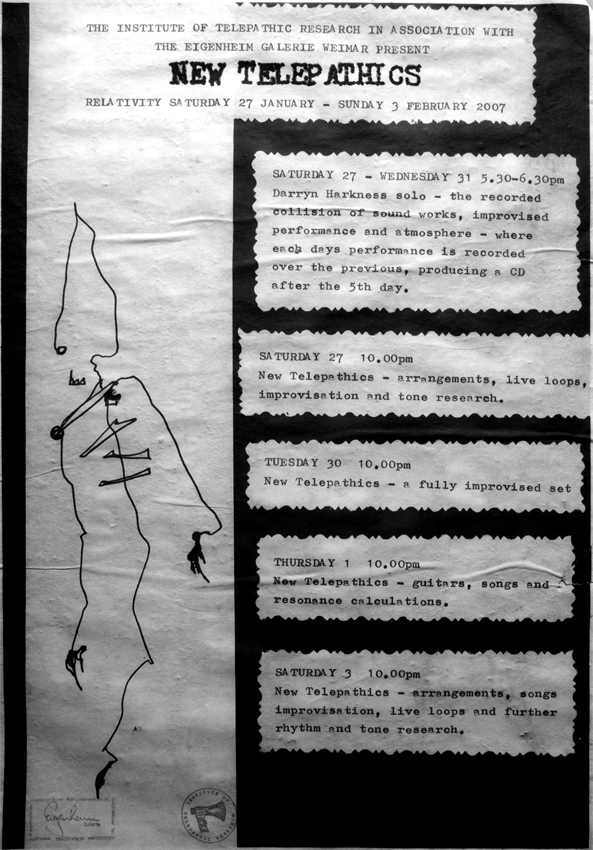 THE INSTITUTE OF TELEPATHIC RESEARCH IN ASSOCIATION WITH
THE EIGENHEIM GALERIE WEIMAR PRESENT
NEW TELEPATHICS
RELATIVITY SATURDAY 27 JANUARY - SUNDAY 3 FEBRUARY 2007
SATURDAY 27 - WEDNESDAY 31 5.30-6.30pm
Darryn Harkness solo - the recorded
collision of sound works, improvised
performance and atmosphere - where
each days performance is recorded
over the previous, producing a CD
after the 5th day.
SATURDAY 27 10.00pm
New Telepathics - arrangements, live loops,
improvisation and tone research.
TUESDAY 30 10.00pm
New Telepathics - a fully improvised set
THURSDAY 1 10.00pm
New Telepathics - guitars, songs and
resonance calculations.
SATURDAY 3 10.00pm
New Telepathics - arrangements, songs
improvisation, live loops and further
rhythm and tone research.
Eigenheim
Galerie
INSTITUTE OF